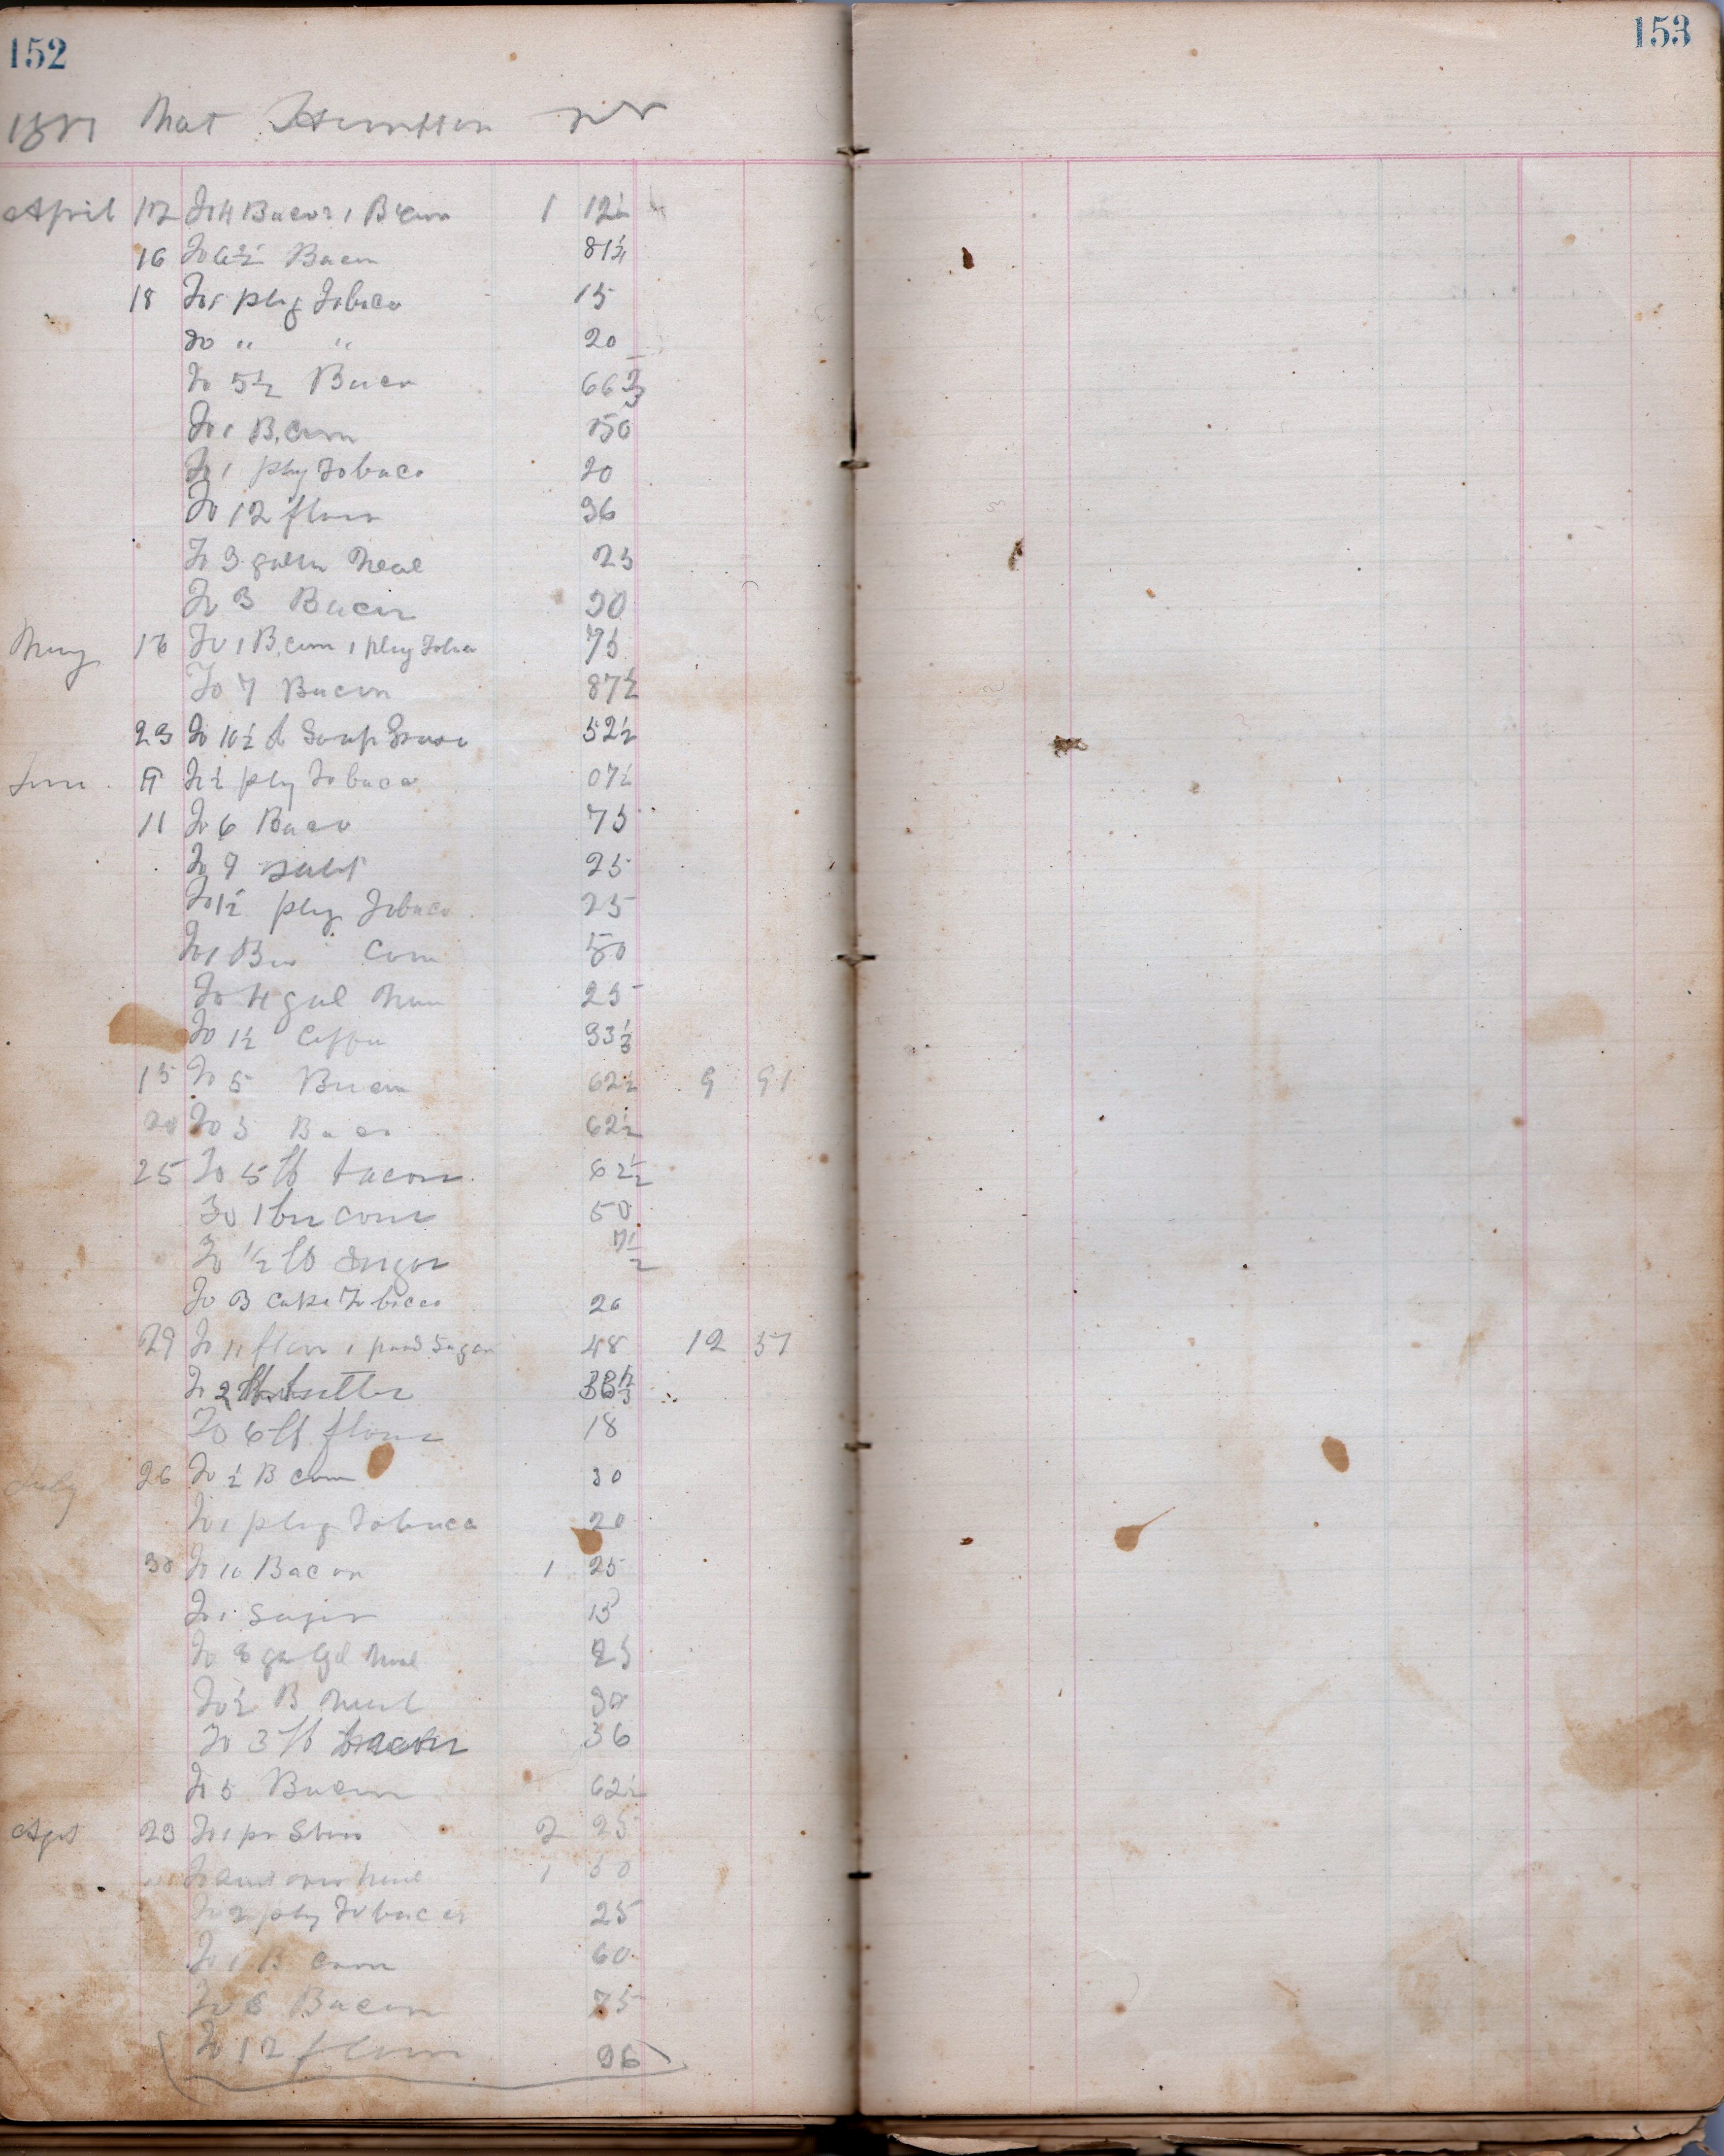 152
153
Mat
April 12 To 4 Bacon 1 B corn 1 12½
16 To 6½ Bacon 81¼
18 To 1 plug Tobaco 15
To " " 20
To 5½ Bacn 66 2/3
To 1 B. corn 50
To 1 plug Tobaco 20
To 12 flour 36
To 3 gallon Meal 25
To 3 Bacon 30
May 16 To 1 B. corn 1 plug Tobac 75
To 7 Bacon 87½
23 To 10½ lb Soap Grase 52½
June To ½ plug Tobaco 07½
11 To 6 Baco 75
To 9 salt 25
To 1½ plug Tobaco 25
To 1 Bu Corn 50
To 4 gal 25
To 1½ Coffee 33⅓
15 To 5 Bacon 62½ 9 91
20 To 5 Baco 62½
25 To 5 lb bacon 62½
To 1 bu corn 50
To ½ lb Sugar 7½
To 3 cake Tobacco 20
29 To 11 flour 1 pound Sugar 48 12 57
To 2 lb butter
To 6 lb flour 18
July 26 To ½ B corn 30
To 1 plug Tobaco 20
30 To 10 Bacon 1 25
To 1 Suger 15
To 3 Meal 25
To ½ B Meal 30
To 3 lb bacon 36
To 5 Bacon 62½
23 To 1 pr Shoes 2 25
1 50
To 2 plug Tobacco 25
To 1 B corn 60
To 6 Bacon 75
To 12 flour 36